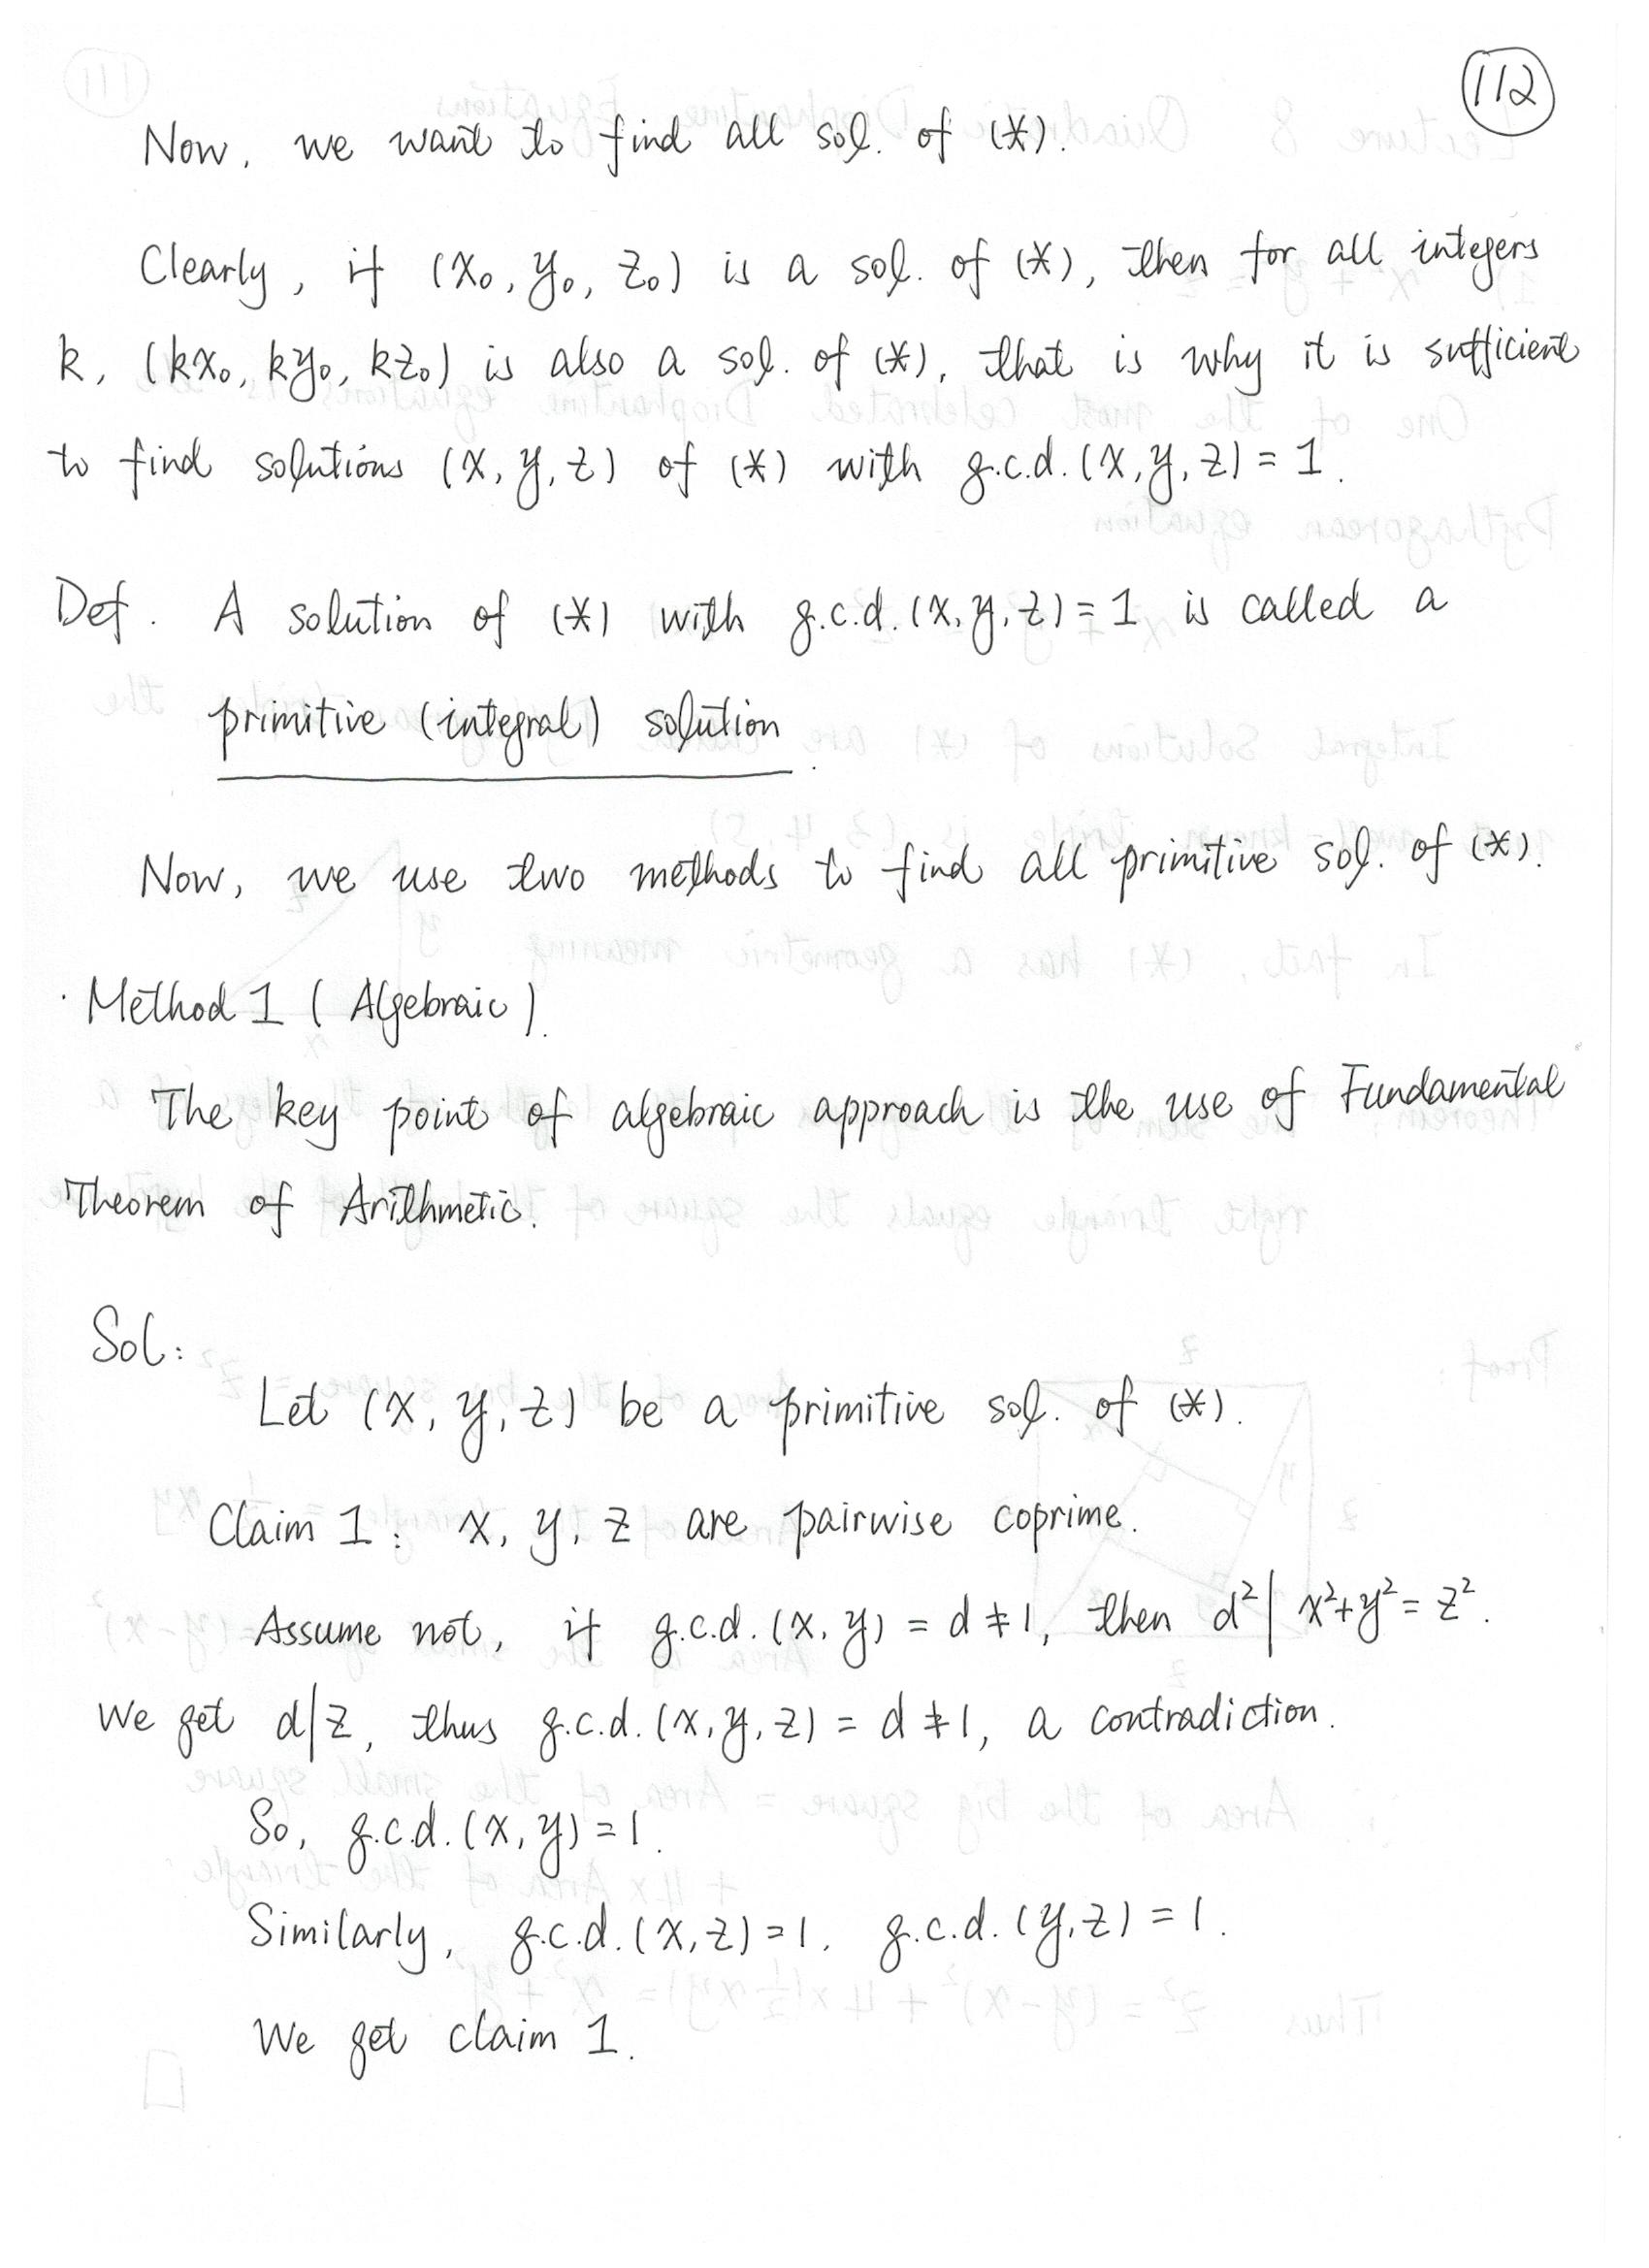 112
Now, we want to find all sol. of (*).
Clearly, if (x₀, y₀, z₀) is a sol. of (*), then for all integers
k, (kx₀, ky₀, kz₀) is also a sol. of (*), that is why it is sufficient
to find solutions (x, y, z) of (*) with g.c.d. (x, y, z) = 1.
Def. A solution of (*) with g.c.d. (x, y, z) = 1 is called a
primitive (integral) solution.
Now, we use two methods to find all primitive sol. of (*).
· Method 1 (Algebraic).
The key point of algebraic approach is the use of Fundamental
Theorem of Arithmetic.
Sol:
Let (x, y, z) be a primitive sol. of (*).
Claim 1: x, y, z are pairwise coprime.
Assume not, if g.c.d. (x, y) = d ≠ 1, then d² | x²+y² = z².
We get d|z, thus g.c.d. (x, y, z) = d ≠ 1, a contradiction.
So, g.c.d. (x, y) = 1.
Similarly, g.c.d. (x, z) = 1, g.c.d. (y, z) = 1.
We get claim 1.